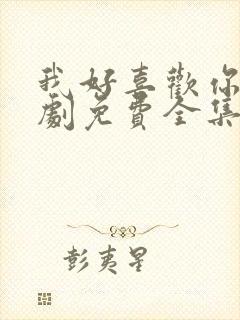 我好喜歡你
劇免費全集
彭夷星